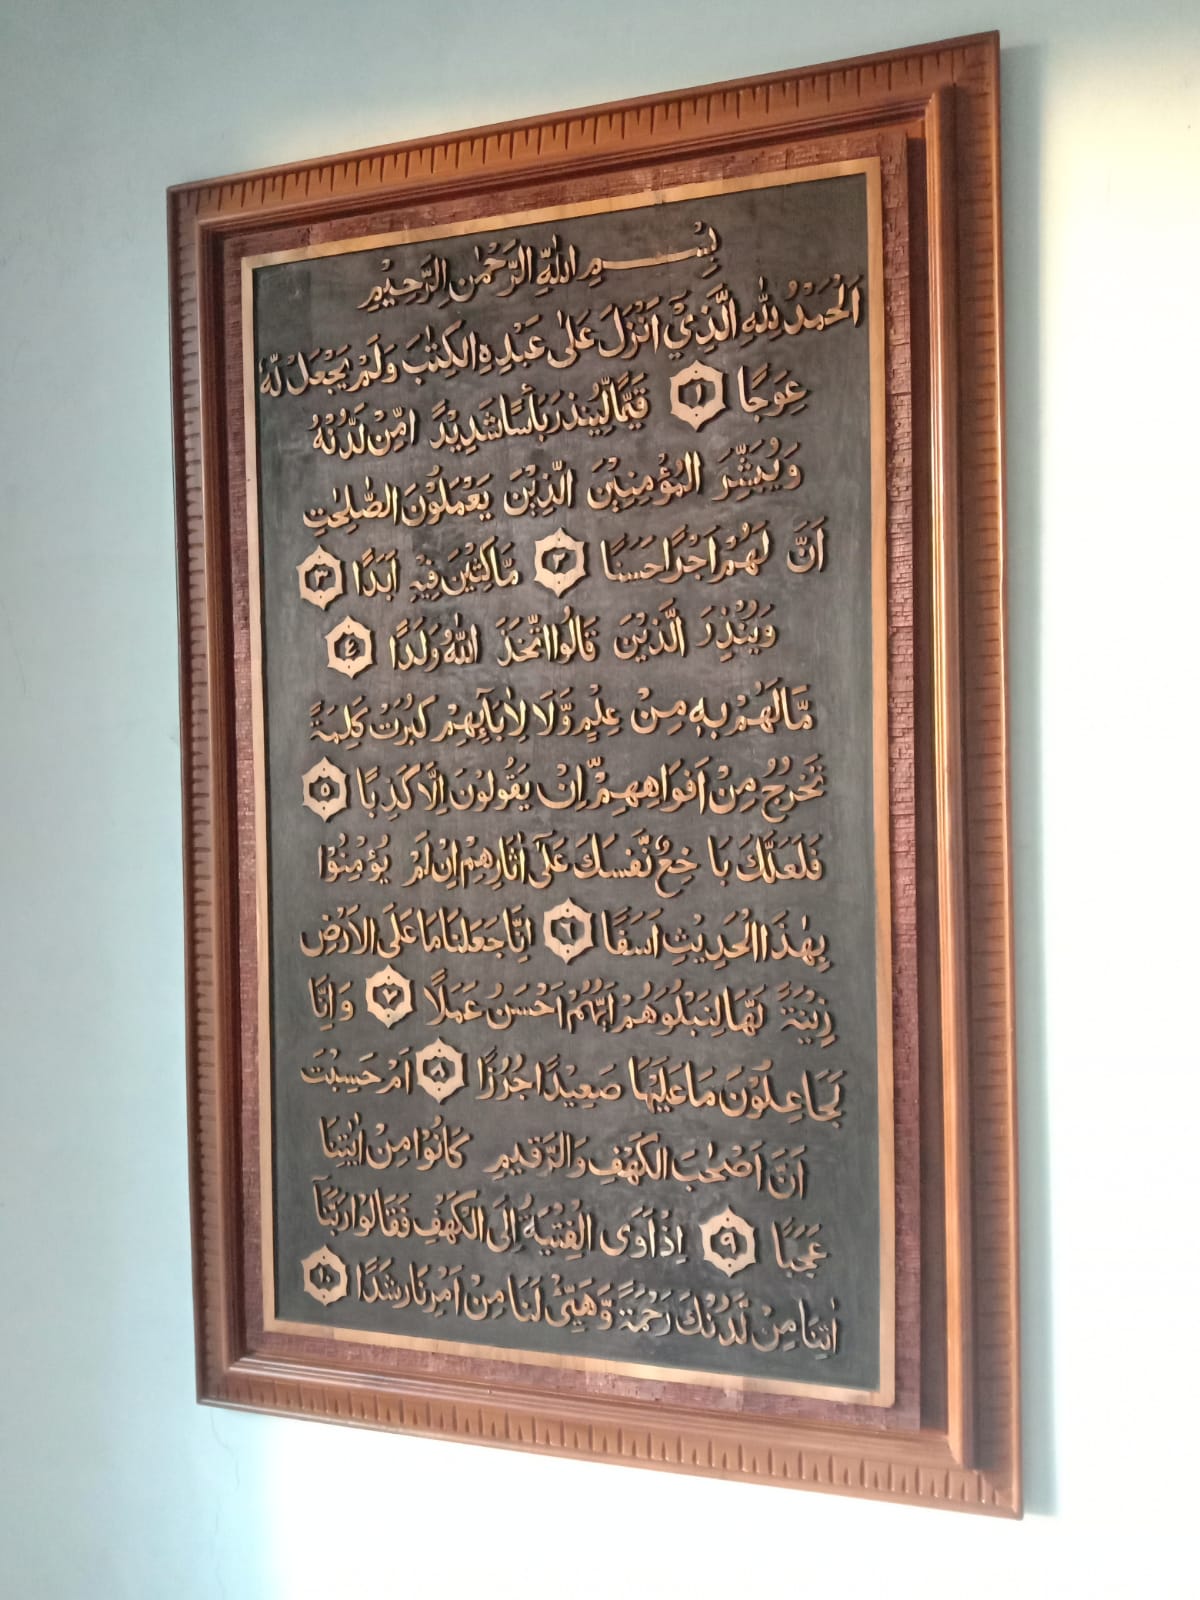 بِسْمِ اللّٰهِ الرَّحْمٰنِ الرَّحِيْمِ
اَلْحَمْدُ لِلّٰهِ الَّذِيْٓ اَنْزَلَ عَلٰى عَبْدِهِ الْكِتٰبَ وَلَمْ يَجْعَلْ لَّهٗ
عِوَجًا ۝١ قَيِّمًا لِّيُنْذِرَ بَأْسًا شَدِيْدًا مِّنْ لَّدُنْهُ
وَيُبَشِّرَ الْمُؤْمِنِيْنَ الَّذِيْنَ يَعْمَلُوْنَ الصّٰلِحٰتِ
اَنَّ لَهُمْ اَجْرًا حَسَنًا ۝٢ مَّاكِثِيْنَ فِيْهِ اَبَدًا ۝٣
وَيُنْذِرَ الَّذِيْنَ قَالُوا اتَّخَذَ اللّٰهُ وَلَدًا ۝٤
مَّا لَهُمْ بِهٖ مِنْ عِلْمٍ وَّلَا لِاٰبَآئِهِمْ كَبُرَتْ كَلِمَةً
تَخْرُجُ مِنْ اَفْوَاهِهِمْ اِنْ يَّقُوْلُوْنَ اِلَّا كَذِبًا ۝٥
فَلَعَلَّكَ بَاخِعٌ نَّفْسَكَ عَلٰٓى اٰثَارِهِمْ اِنْ لَّمْ يُؤْمِنُوْا
بِهٰذَا الْحَدِيْثِ اَسَفًا ۝٦ اِنَّا جَعَلْنَا مَا عَلَى الْاَرْضِ
زِيْنَةً لَّهَا لِنَبْلُوَهُمْ اَيُّهُمْ اَحْسَنُ عَمَلًا ۝٧ وَاِنَّا
لَجَاعِلُوْنَ مَا عَلَيْهَا صَعِيْدًا جُرُزًا ۝٨ اَمْ حَسِبْتَ
اَنَّ اَصْحٰبَ الْكَهْفِ وَالرَّقِيْمِ كَانُوْا مِنْ اٰيٰتِنَا
عَجَبًا ۝٩ اِذْ اَوَى الْفِتْيَةُ اِلَى الْكَهْفِ فَقَالُوْا رَبَّنَآ
اٰتِنَا مِنْ لَّدُنْكَ رَحْمَةً وَّهَيِّئْ لَنَا مِنْ اَمْرِنَا رَشَدًا ۝١٠